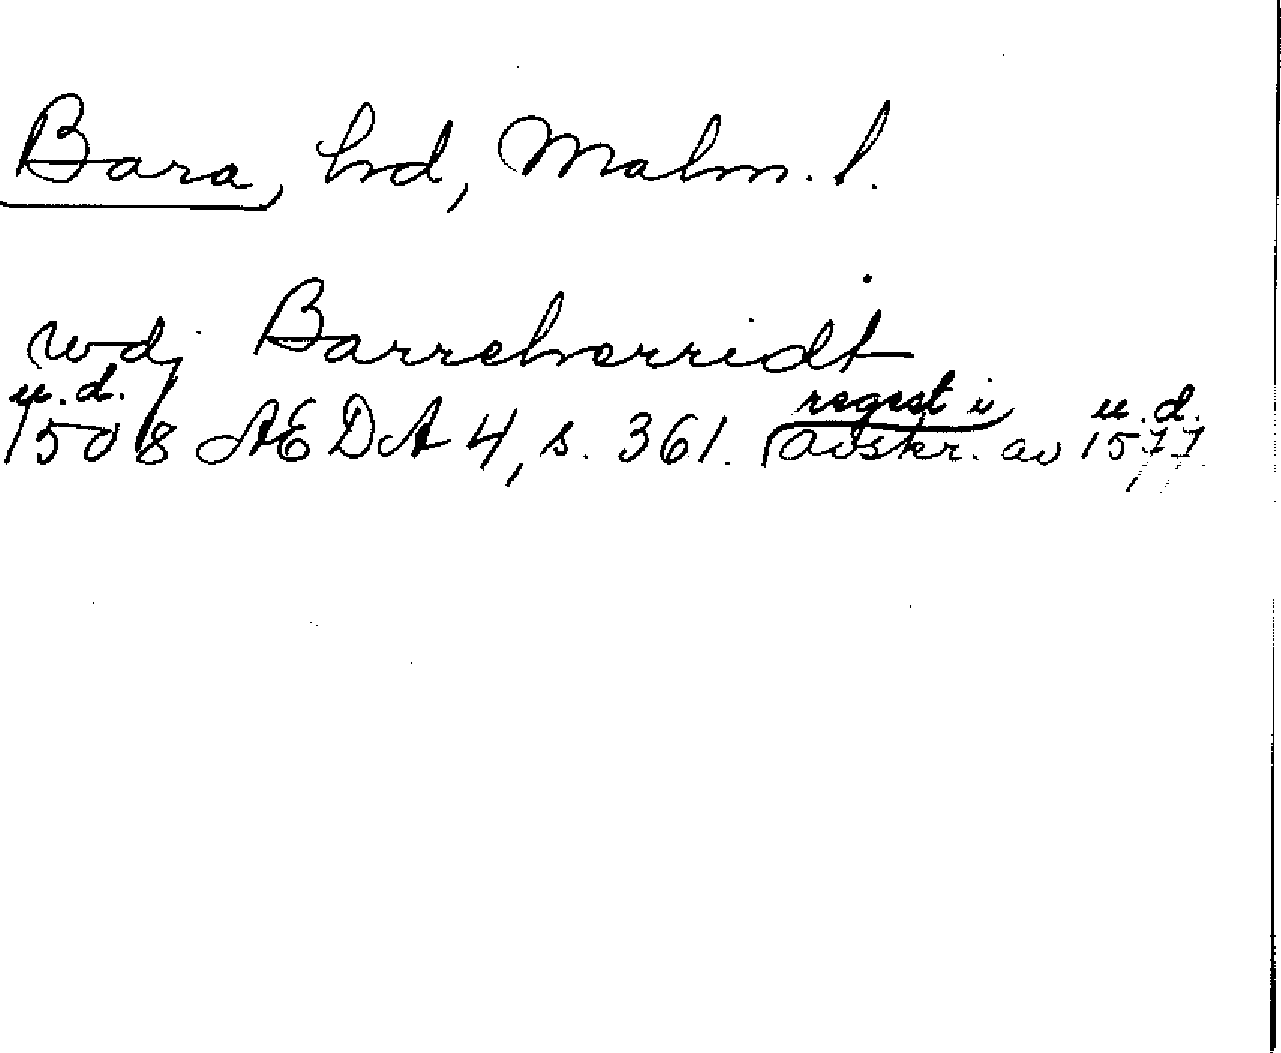 Bara, hd, Malm. l.
wdj Barreherridt
u.d. regest i u.d.
1508 ÆDA 4, s. 361. (avskr. av 1577